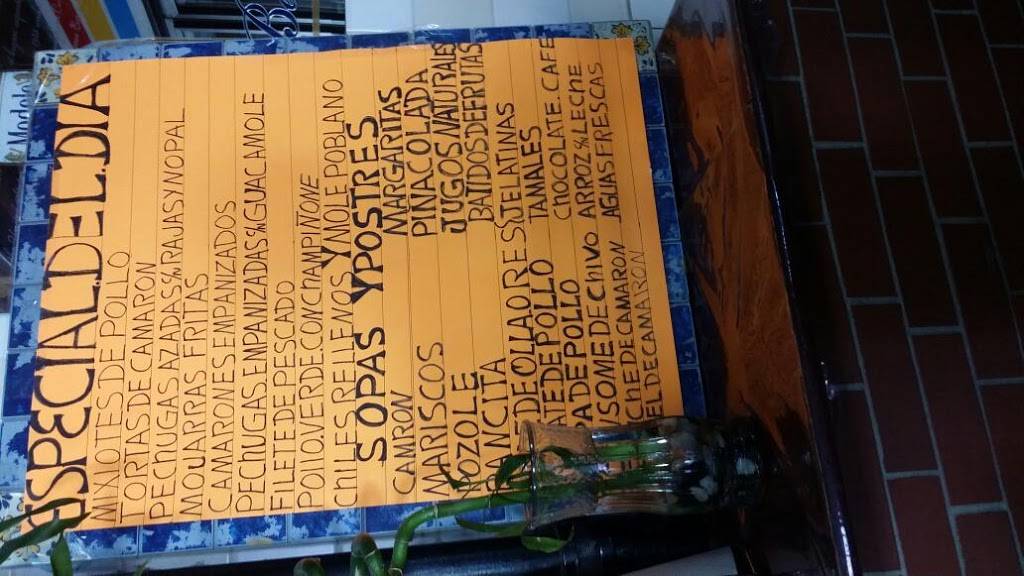 ESPECIAL DEL DIA
MIXIOTES DE POLLO
TORTAS DE CAMARON
PECHUGAS AZADAS S/N RAJAS Y NOPAL
MOUARRAS FRITAS
CAMARONES EMPANIZADOS
PECHUGAS EMPANIZADAS S/N GUACAMOLE
FILETE DE PESCADO
POLLO VERDE CON CHAMPIÑONE
CHILES RELLENOS Y MOLE POBLANO
SOPAS Y POSTRES
CAMRON MARGARITAS
MARISCOS PIÑA COLADA
POZOLE JUGOS NATURALES
PANCITA BATIDOS DE FRUTAS
DE OLLA O RES GELATINAS
DE POLLO TAMALES
PA DE POLLO CHOCOLATE. CAFE
SOME DE CHIVO ARROZ S/N LECHE
CHE DE CAMARON AGUAS FRESCAS
EL DE CAMARON
Modelo